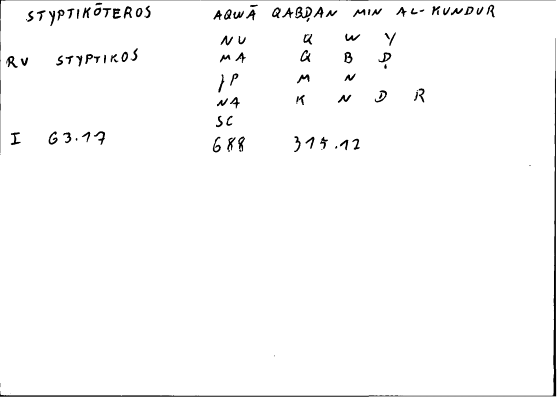 STYPTIKŌTEROS AQWĀ QABḌAN MIN AL-KUNDUR
NU Q W Y
RV STYPTIKOS MA Q B Ḍ
JP M N
NA K N D R
SC
I 63.17 688 315.12